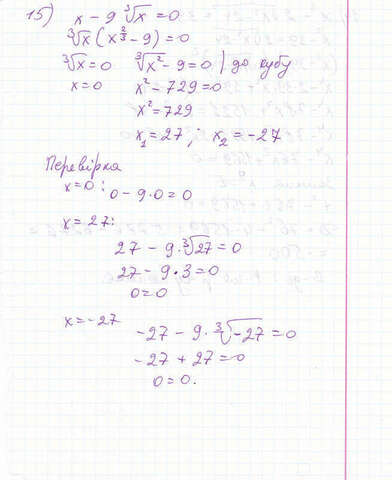 15) x - 9 ∛x = 0
∛x (x^(2/3) - 9) = 0
∛x = 0   ∛x² - 9 = 0 | до кубу
x = 0   x² - 729 = 0
x² = 729
x₁ = 27; x₂ = -27
Перевірка
x = 0: 0 - 9·0 = 0
x = 27:
27 - 9·∛27 = 0
27 - 9·3 = 0
0 = 0
x = -27
-27 - 9·∛-27 = 0
-27 + 27 = 0
0 = 0.